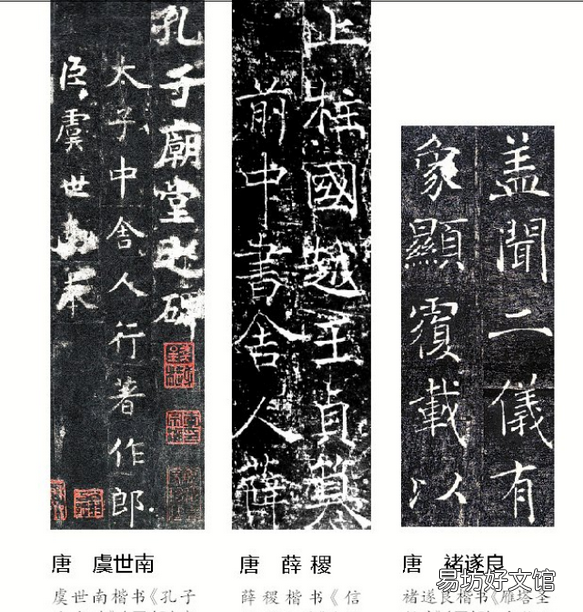 孔子廟堂之碑
太子中舍人行著作郎
臣虞世南奉
上柱國越王貞
前中書舍人薛
盖聞二儀有
象顯覆載以
唐 虞世南
唐 薛稷
唐 褚遂良
虞世南楷书《孔子
薛稷楷书《信
褚遂良楷书《雁塔圣
易坊好文馆